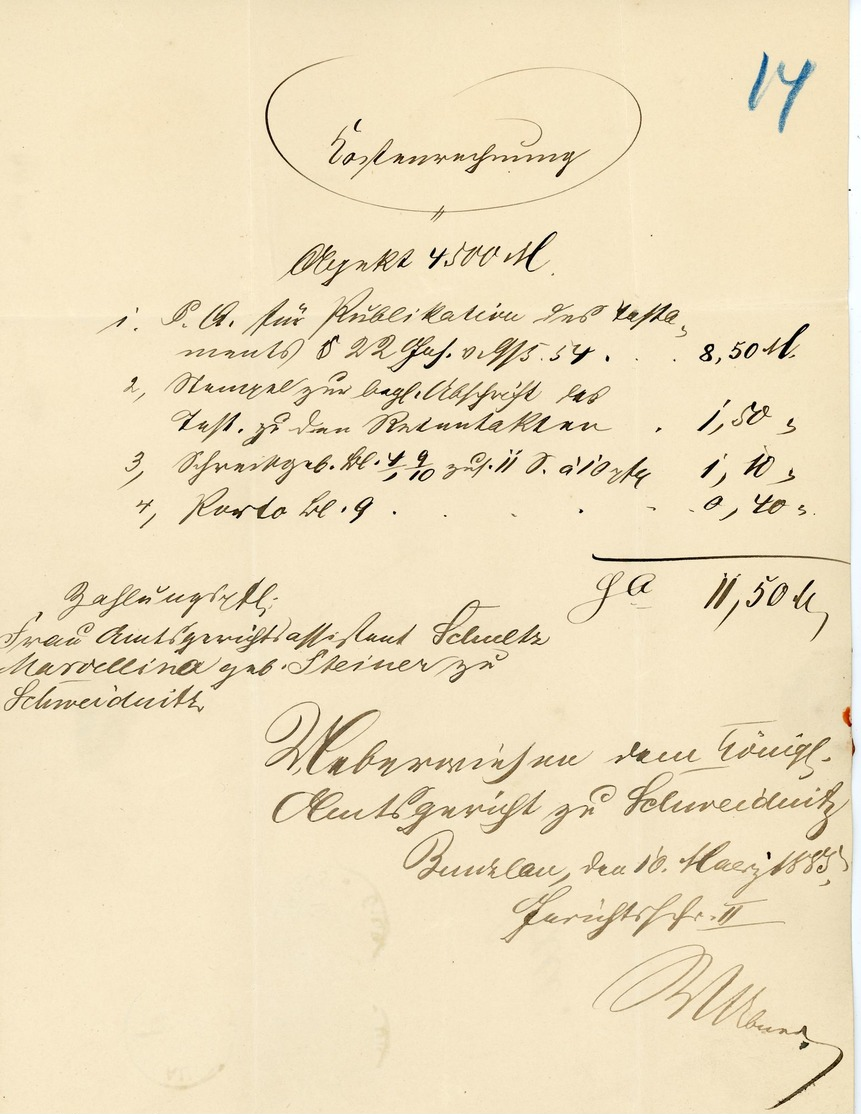 14
Kostenrechnung
Objekt 4500 M.
1. P. A. für Publikation des Testa-
ments § 22 Ges. v. 9/5. 54 . . 8,50 M.
2, Stempel zur begl. Abschrift des
Test. zu den Retentakten . 1,50 "
3, Schreibgeb. Bl. 9/10 zus. 11 S. à 10 pfg 1,10 "
4, Porto Bl. 9 . . . . . 0,40 "
Sa 11,50 M
Zahlungspfl.:
Frau Amtsgerichtsassistent Schultz
Marcellina geb. Steiner zu
Schweidnitz
Ueberwiesen dem Königl.
Amtsgericht zu Schweidnitz
Bunzlau, den 10. Maerz 1885,
Gerichtsschr. II